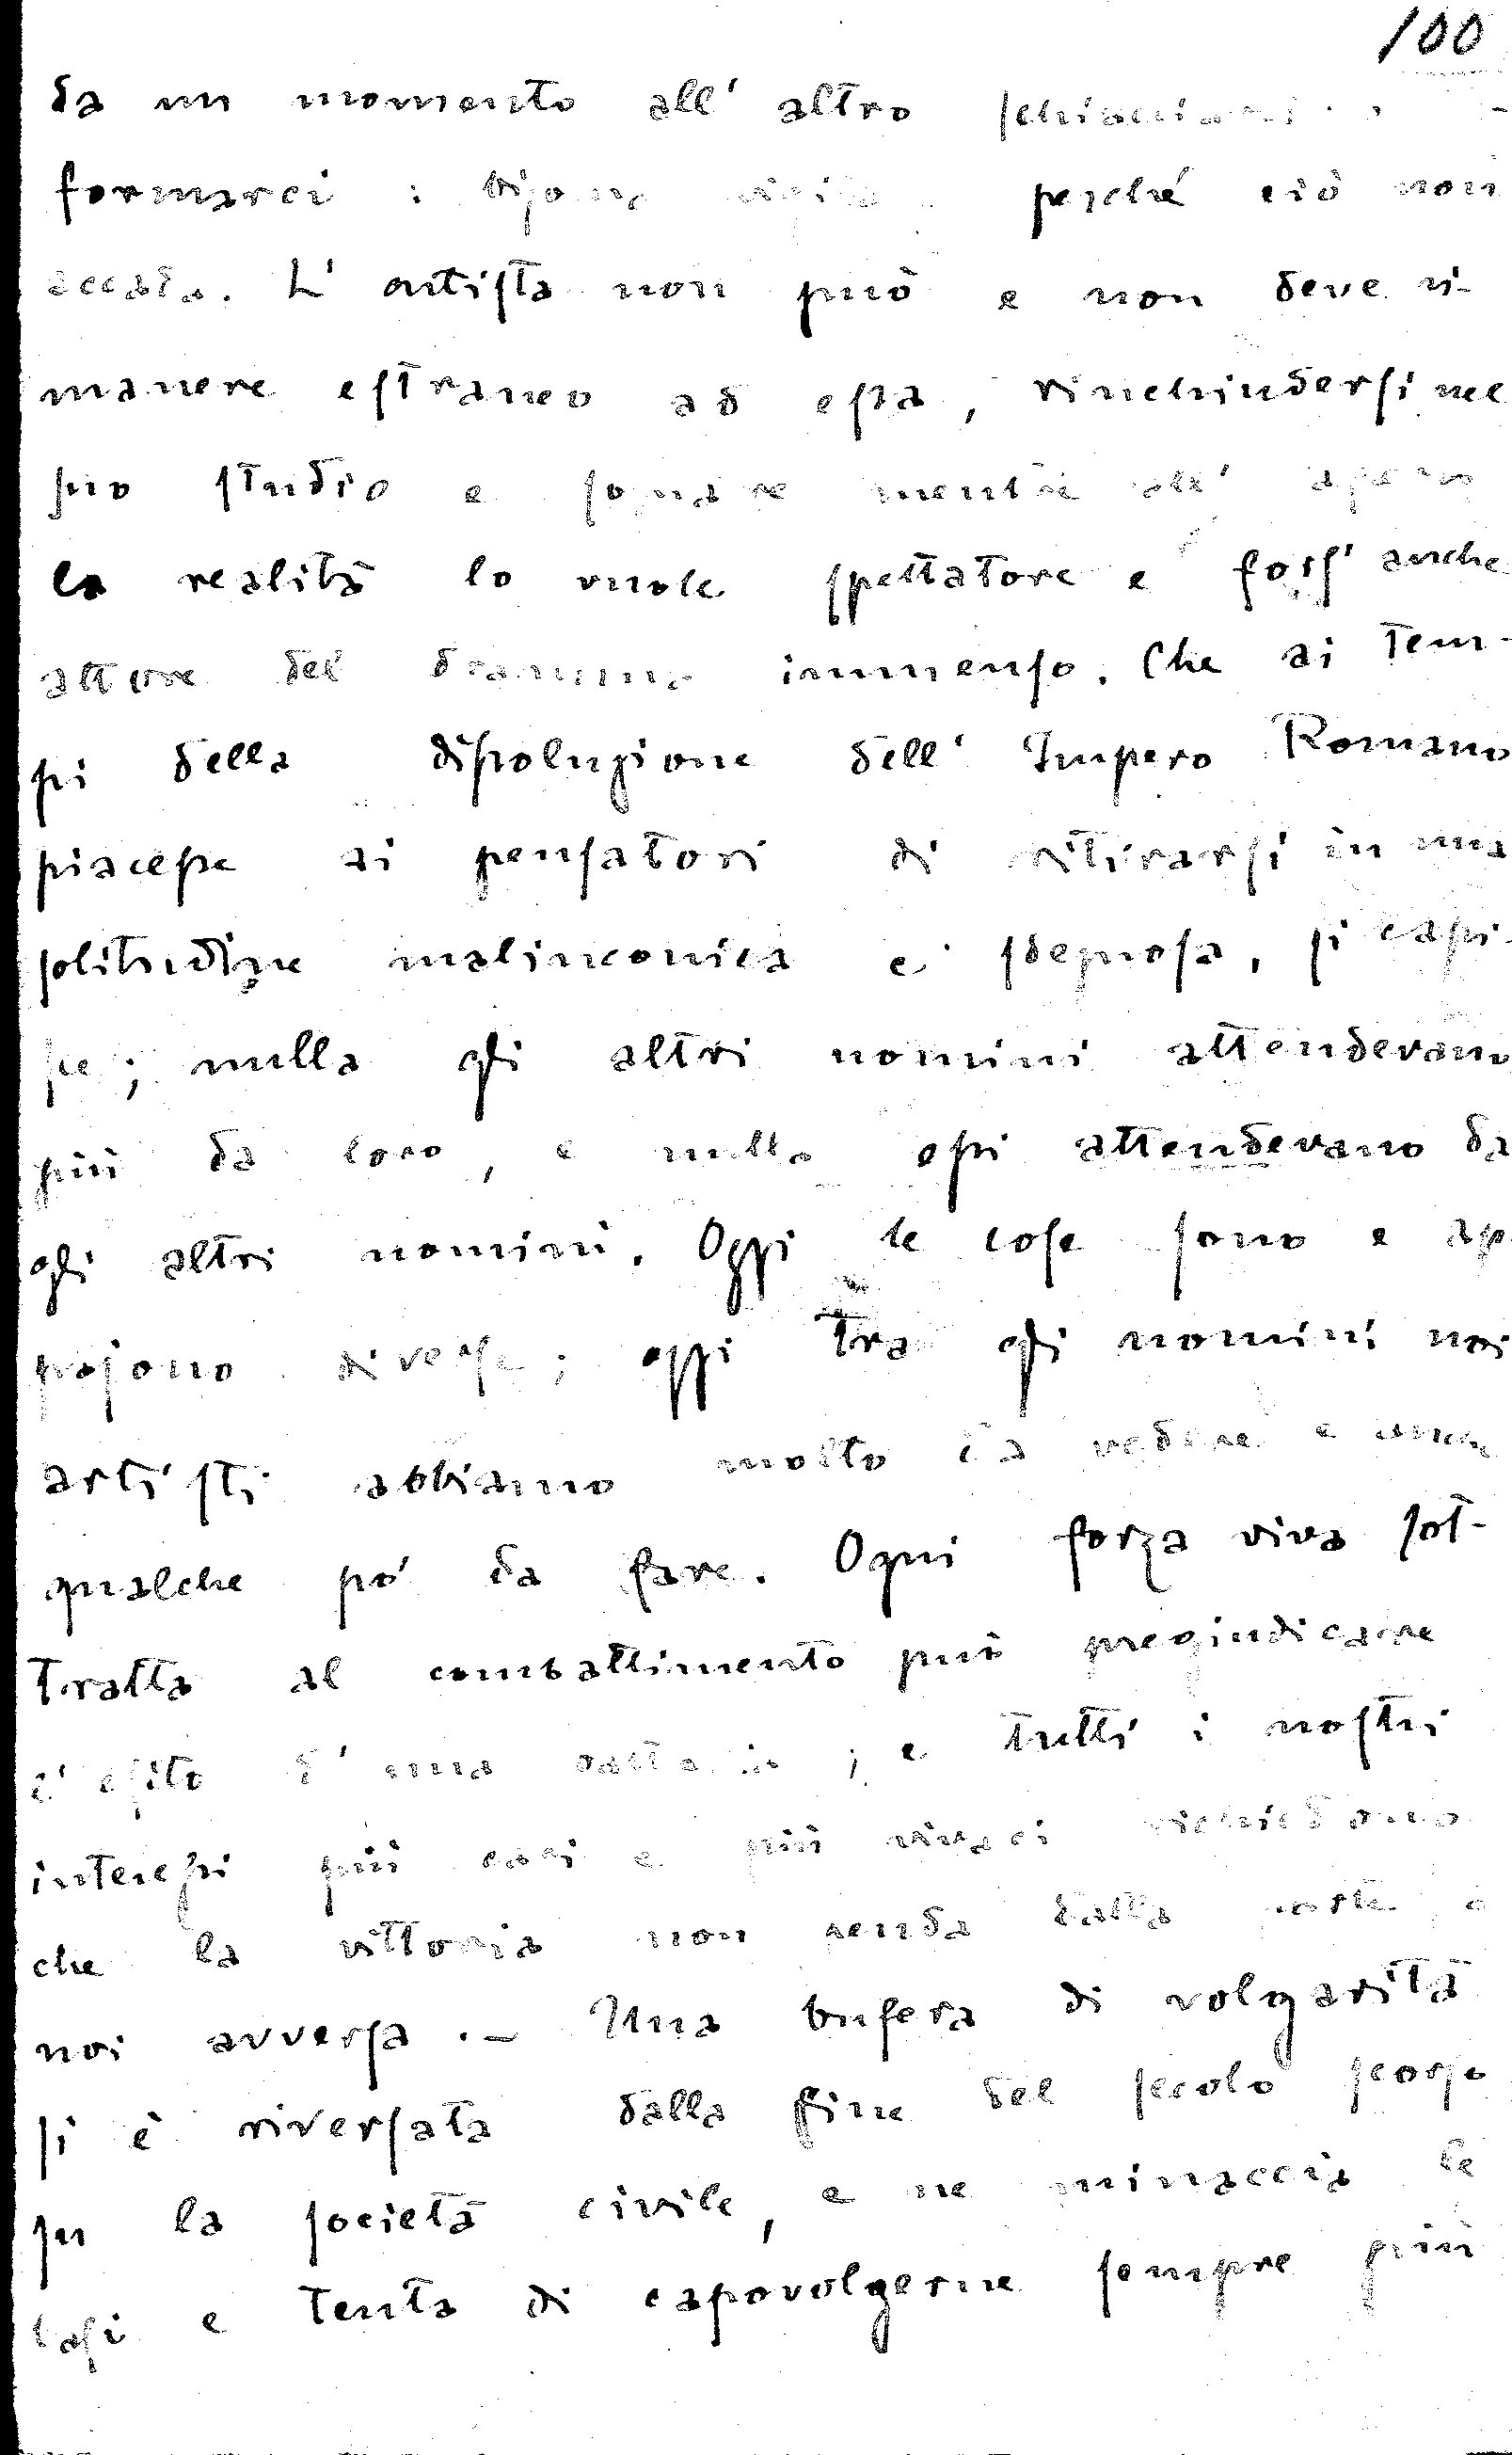 100
da un momento all' altro schiacciarci
formarci : bisogna perché ciò non
accada. L' artista non può e non deve ri-
manere estraneo ad essa, rinchiudersi nel
suo studio e sognare mentre all' aperto
la realità lo vuole spettatore e fors' anche
attore del dramma immenso. Che ai tem-
pi della dissoluzione dell' Impero Romano
piacesse ai pensatori di ritirarsi in una
solitudine malinconica e sdegnosa, si capi-
sce; nulla gli altri uomini attendevano
più da loro, e nulla essi attendevano da
gli altri uomini. Oggi le cose sono e ap
pajono diverse; oggi tra gli uomini noi
artisti abbiamo molto da vedere e anche
qualche pò da fare. Ogni forza viva sot-
tratta al combattimento può pregiudicare
l' esito d' una battaglia; e tutti i nostri
interessi più cari e più vivaci richiedono
che la vittoria non penda dalla parte a
noi avversa. – Una bufera di volgarità
si è riversata dalla fine del secolo scorso
su la società civile, e ne minaccia le
basi e tenta di capovolgerne sempre più